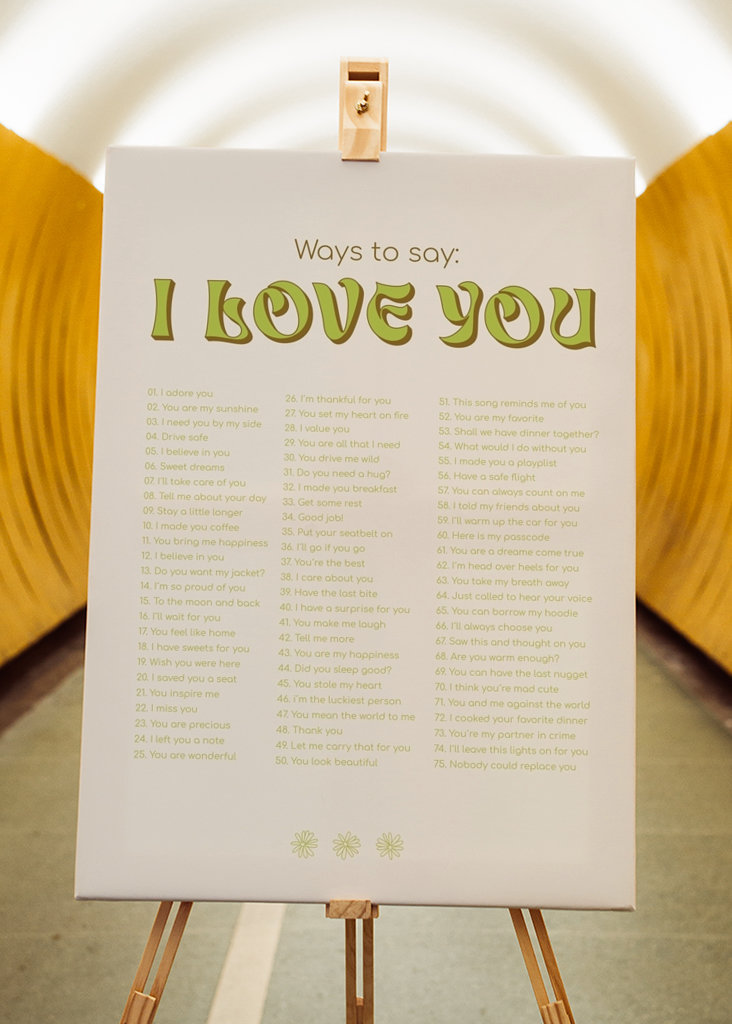 Ways to say:
I LOVE YOU
01. I adore you
02. You are my sunshine
03. I need you by my side
04. Drive safe
05. I believe in you
06. Sweet dreams
07. I'll take care of you
08. Tell me about your day
09. Stay a little longer
10. I made you coffee
11. You bring me happiness
12. I believe in you
13. Do you want my jacket?
14. I'm so proud of you
15. To the moon and back
16. I'll wait for you
17. You feel like home
18. I have sweets for you
19. Wish you were here
20. I saved you a seat
21. You inspire me
22. I miss you
23. You are precious
24. I left you a note
25. You are wonderful
26. I'm thankful for you
27. You set my heart on fire
28. I value you
29. You are all that I need
30. You drive me wild
31. Do you need a hug?
32. I made you breakfast
33. Get some rest
34. Good job!
35. Put your seatbelt on
36. I'll go if you go
37. You're the best
38. I care about you
39. Have the last bite
40. I have a surprise for you
41. You make me laugh
42. Tell me more
43. You are my happiness
44. Did you sleep good?
45. You stole my heart
46. i'm the luckiest person
47. You mean the world to me
48. Thank you
49. Let me carry that for you
50. You look beautiful
51. This song reminds me of you
52. You are my favorite
53. Shall we have dinner together?
54. What would I do without you
55. I made you a playplist
56. Have a safe flight
57. You can always count on me
58. I told my friends about you
59. I'll warm up the car for you
60. Here is my passcode
61. You are a dreame come true
62. I'm head over heels for you
63. You take my breath away
64. Just called to hear your voice
65. You can borrow my hoodie
66. I'll always choose you
67. Saw this and thought on you
68. Are you warm enough?
69. You can have the last nugget
70. I think you're mad cute
71. You and me against the world
72. I cooked your favorite dinner
73. You're my partner in crime
74. I'll leave this lights on for you
75. Nobody could replace you